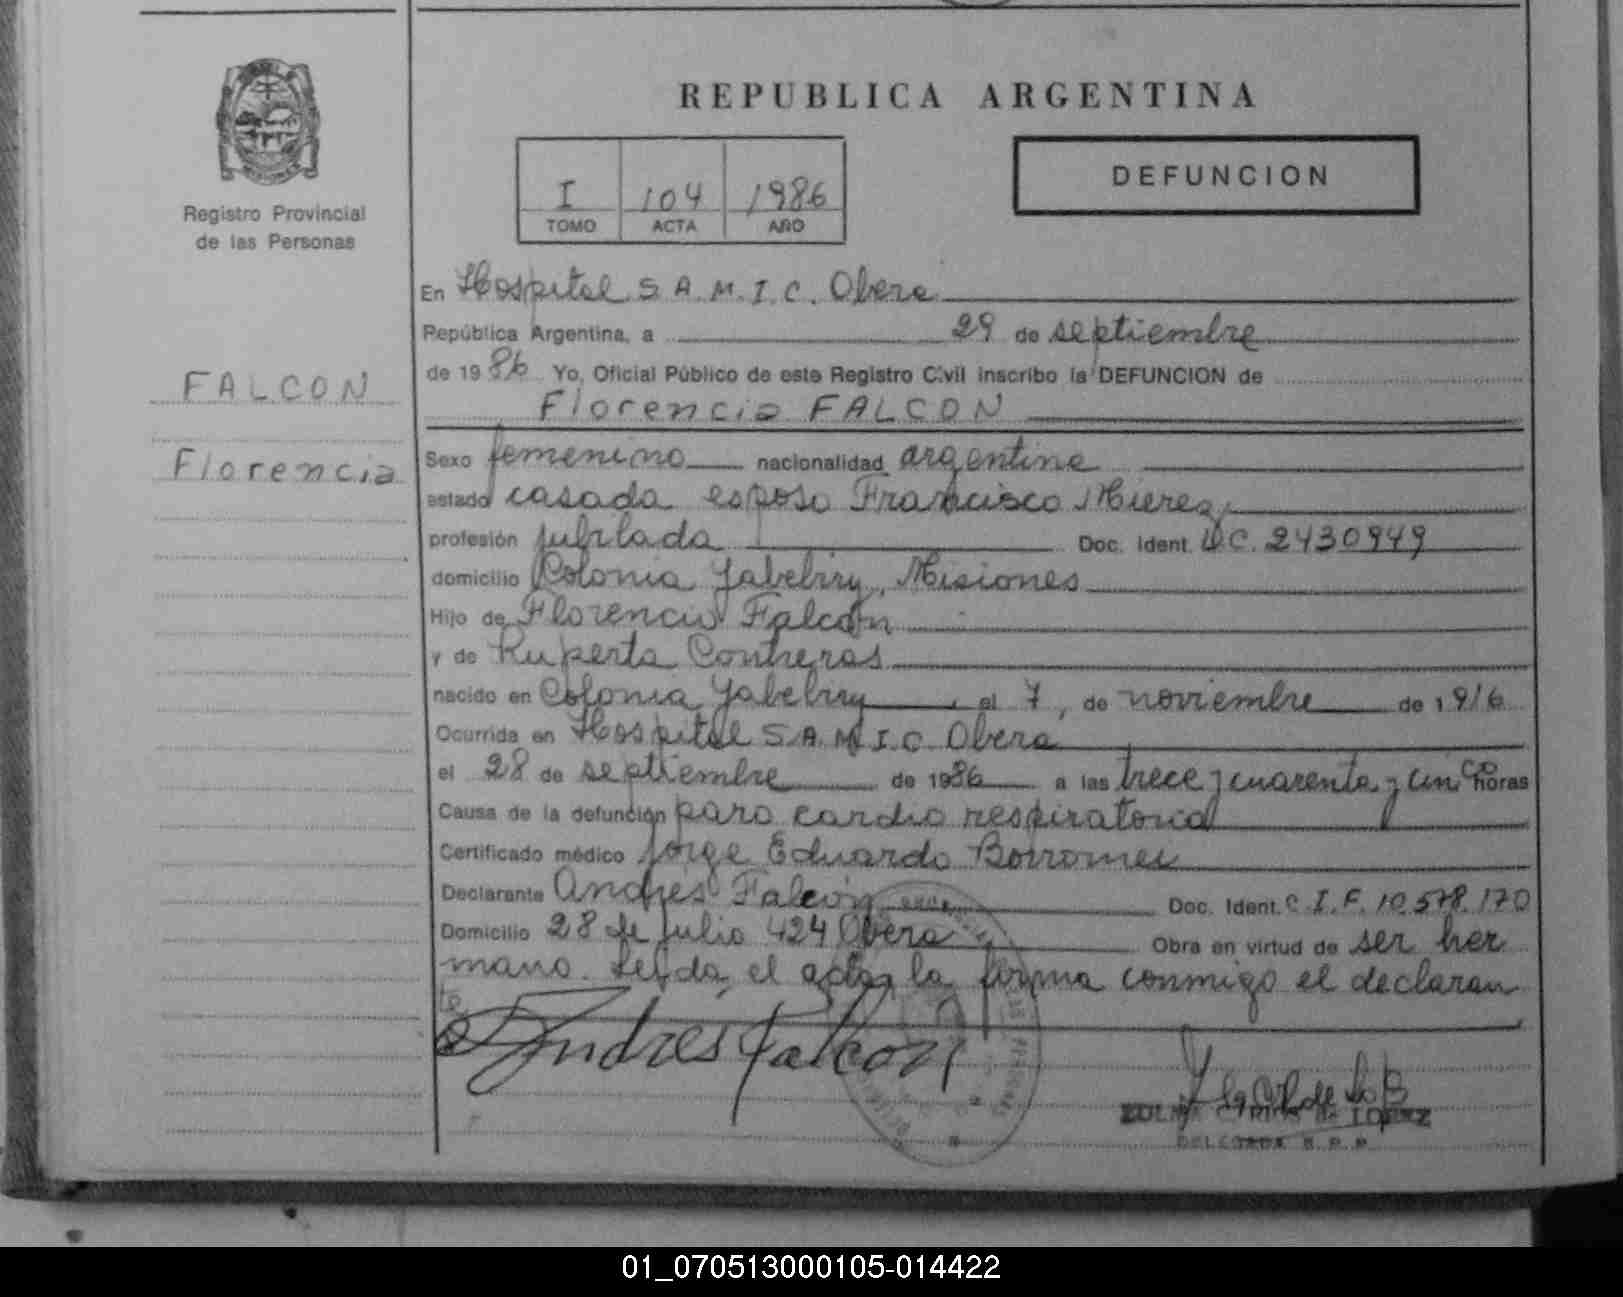 REPUBLICA ARGENTINA
DEFUNCION
I 104 1986
TOMO ACTA AÑO
Registro Provincial
de las Personas
FALCON
Florencia
En Hospital S.A.M.I.C. Obera
República Argentina, a 29 de septiembre
de 1986 Yo, Oficial Público de este Registro Civil inscribo la DEFUNCION de
Florencia FALCON
Sexo femenino nacionalidad argentina
estado casada esposo Francisco Mierez
profesión jubilada Doc. Ident. D.C. 2430949
domicilio Colonia Yabebiry, Misiones
Hijo de Florencio Falcón
y de Ruperta Contreras
nacido en Colonia Yabebiry, el 7, de noviembre de 1916
Ocurrida en Hospital S.A.M.I.C. Obera
el 28 de septiembre de 1986 a las trece y cuarenta y cinco horas
Causa de la defunción paro cardio respiratorio
Certificado médico Jorge Eduardo Borromei
Declarante Andrés Falcón Doc. Ident. C.I.F. 10.578.170
Domicilio 28 de julio 424 Obera Obra en virtud de ser her
mano. Leída el acta, la firma conmigo el declaran
te
Andres Falcon
ZULMA DE LOPEZ
DELEGADA R.P.P.
01_070513000105-014422